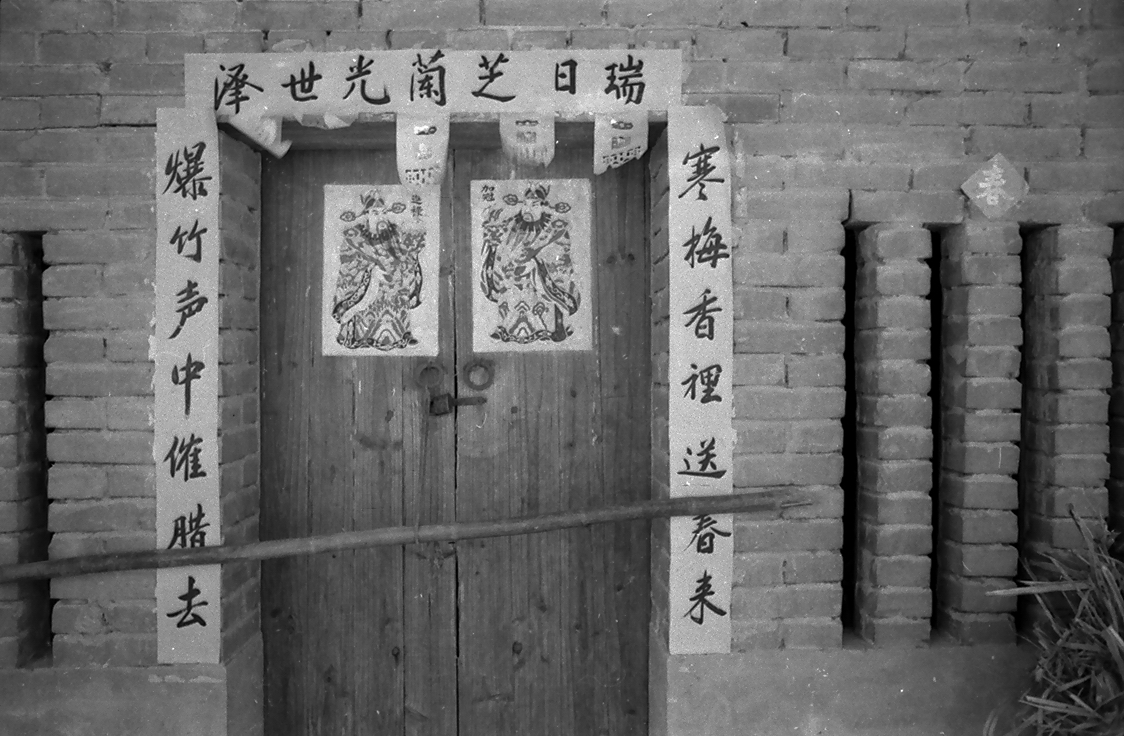 瑞日芝蘭光世泽
寒梅香裡送春来
爆竹声中催腊去
加冠
進禄
春